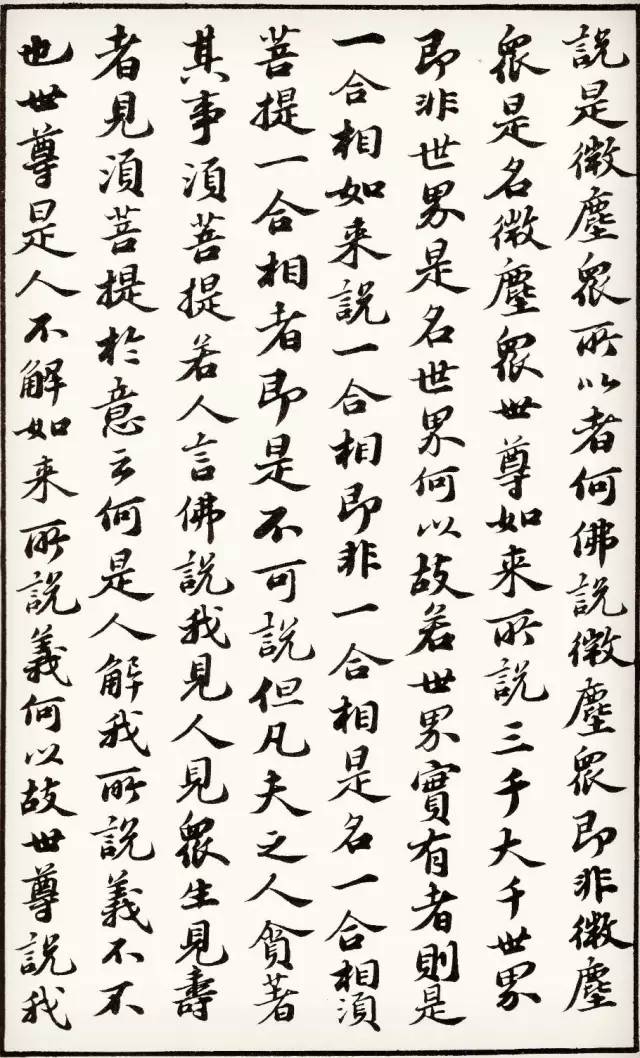 說是微塵衆所以者何佛說微塵衆即非微塵
衆是名微塵衆世尊如来所說三千大千世界
即非世界是名世界何以故若世界實有者則是
一合相如来說一合相即非一合相是名一合相須
菩提一合相者即是不可說但凡夫之人貪著
其事須菩提若人言佛說我見人見衆生見壽
者見須菩提於意云何是人解我所說義不不
也世尊是人不解如来所說義何以故世尊說我